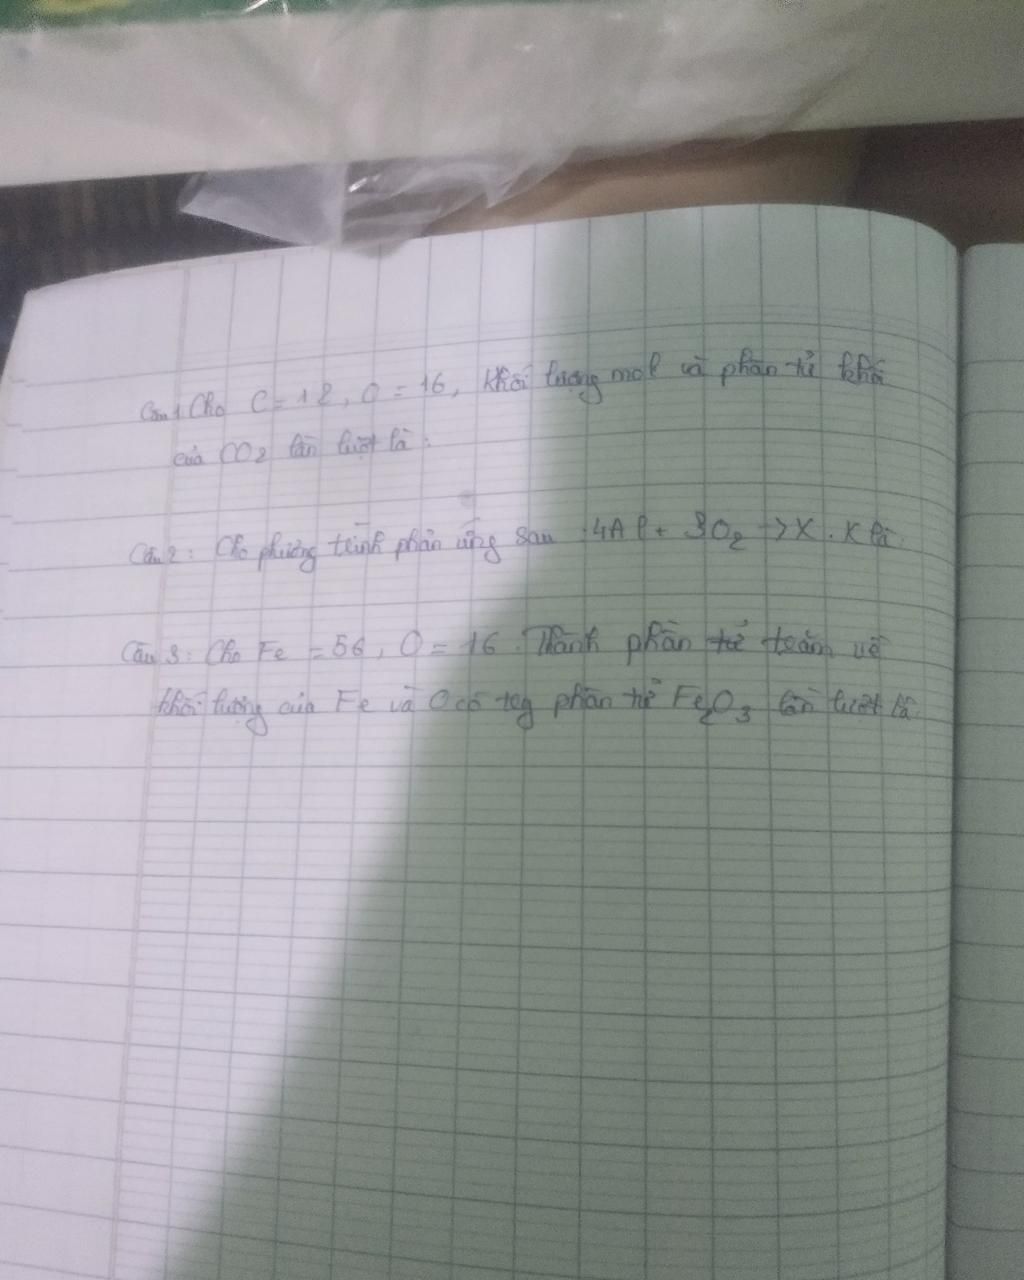 Câu 1 Cho C = 12, O = 16, khối lượng mol và phân tử khối
của CO2 lần lượt là :
Câu 2 : Cho phương trình phản ứng sau : 4Al + 3O2 -> X . X là
Câu 3 : Cho Fe = 56, O = 16. Thành phần tử toành về
khối lượng của Fe và O có tog phân tử Fe2O3 lần lượt là